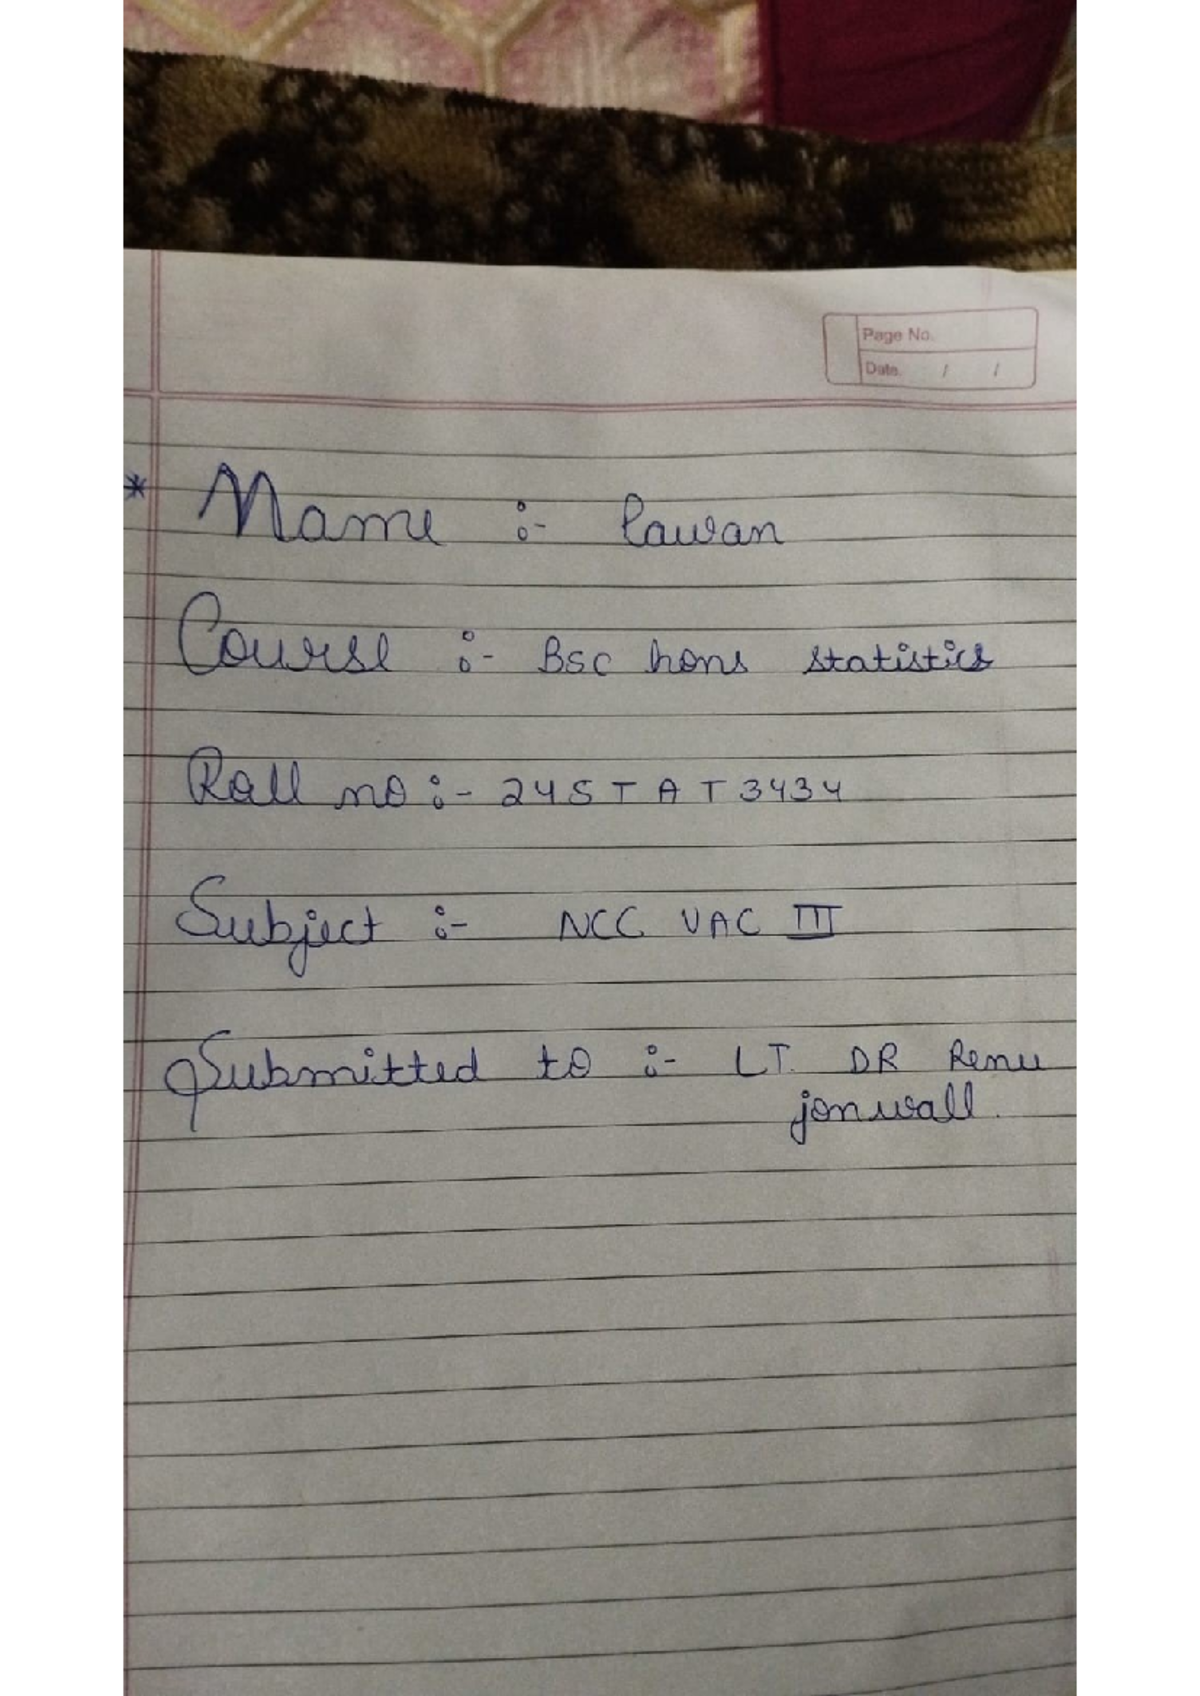 Page No.
Date. / /
* Name :- Pawan
Course :- BSC hons statistics
Roll no :- 24STAT3434
Subject :- NCC VAC III
Submitted to :- LT. DR Renu
jonwall.